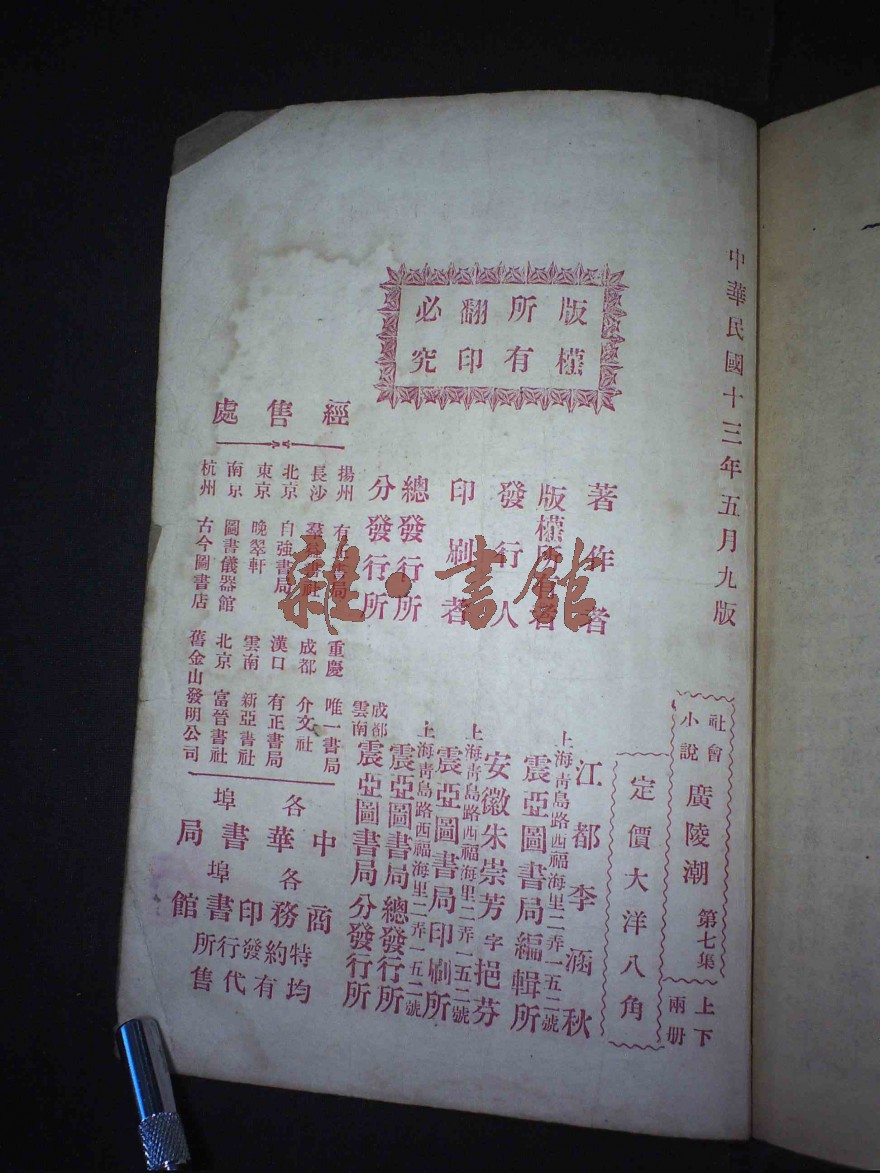 中華民國十三年五月九版
社會小說 廣陵潮 第七集 上下兩册
定價大洋八角
版權所有翻印必究
著作者 江都李涵秋
版權所有者 上海靑島路西福海里二弄一五二號 震亞圖書局編輯所
發行人 安徽朱崇芳字挹芬
印刷者 上海靑島路西福海里二弄一五二號 震亞圖書局印刷所
總發行所 上海靑島路西福海里二弄一五二號 震亞圖書局總發行所
分發行所 成都雲南 震亞圖書局分發行所
經售處
揚州 有 書局 重慶 唯一書局
長沙 社 成都 介文社
北京 自強書局 漢口 有正書局
東京 晚翠軒 雲南 新亞書社
南京 圖書儀器館 北京 富晉書社
杭州 古今圖書店 舊金山發明公司
各埠中華書局各埠商務印書館特約發行所均有代售
雜·書館